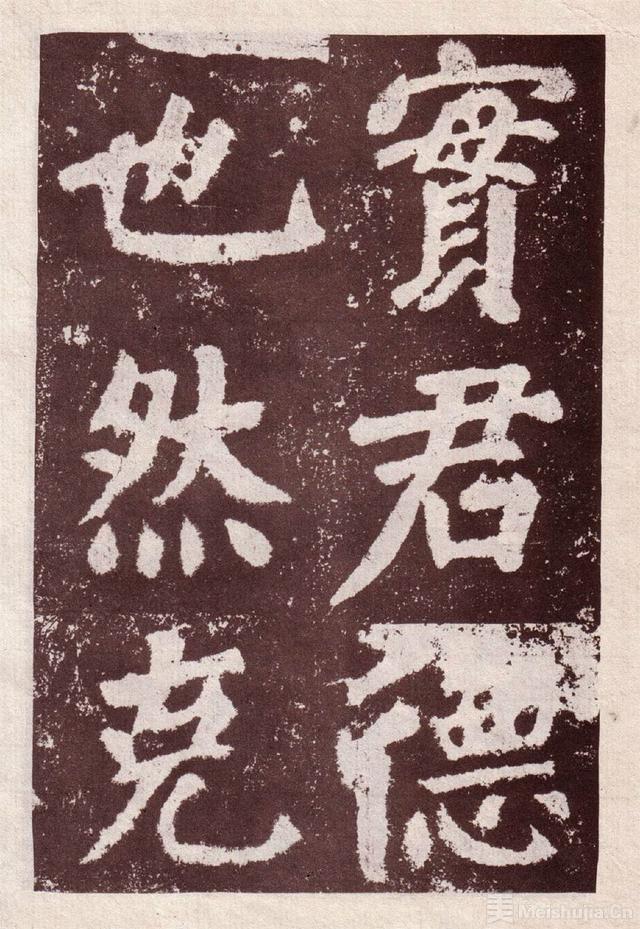 實君德
也然克
美 Meishujia.Cn